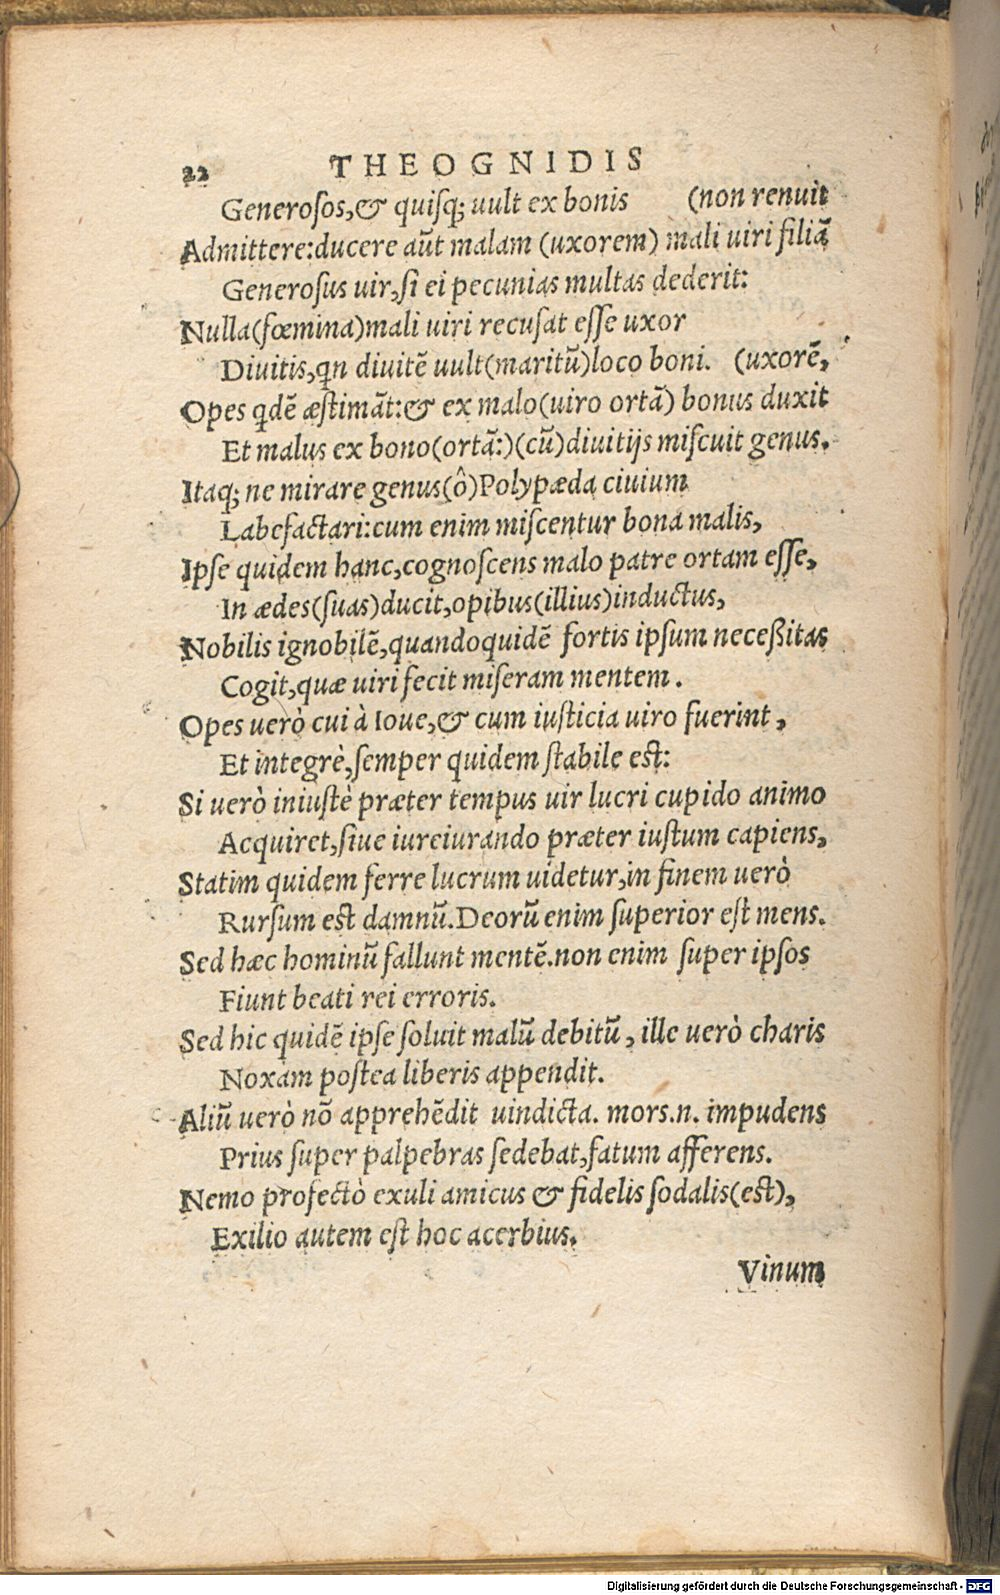 22 THEOGNIDIS
Generosos,& quisq; uult ex bonis (non renuit
Admittere:ducere aūt malam (uxorem) mali uiri filiā
Generosus uir,si ei pecunias multas dederit:
Nulla(fœmina)mali uiri recusat esse uxor
Diuitis,qn diuitē uult(maritū)loco boni. (uxorē,
Opes qdē æstimāt:& ex malo(uiro ortā) bonus duxit
Et malus ex bono(ortā:)(cū)diuitijs miscuit genus.
Itaq; ne mirare genus(ô)Polypæda ciuium
Labefactari:cum enim miscentur bona malis,
Ipse quidem hanc,cognoscens malo patre ortam esse,
In ædes(suas)ducit,opibus(illius)inductus,
Nobilis ignobilē,quandoquidē fortis ipsum neceßitas
Cogit,quæ uiri fecit miseram mentem.
Opes uerò cui à Ioue,& cum iusticia uiro fuerint,
Et integrè,semper quidem stabile est:
Si uerò iniustè præter tempus uir lucri cupido animo
Acquiret,siue iureiurando præter iustum capiens,
Statim quidem ferre lucrum uidetur,in finem uerò
Rursum est damnū.Deorū enim superior est mens.
Sed hæc hominū fallunt mentē.non enim super ipsos
Fiunt beati rei erroris.
Sed hic quidē ipse soluit malū debitū, ille uerò charis
Noxam postea liberis appendit.
Aliū uerò nō apprehēdit uindicta. mors.n. impudens
Prius super palpebras sedebat,fatum afferens.
Nemo profectò exuli amicus & fidelis sodalis(est),
Exilio autem est hoc acerbius.
Vinum
Digitalisierung gefördert durch die Deutsche Forschungsgemeinschaft - DFG